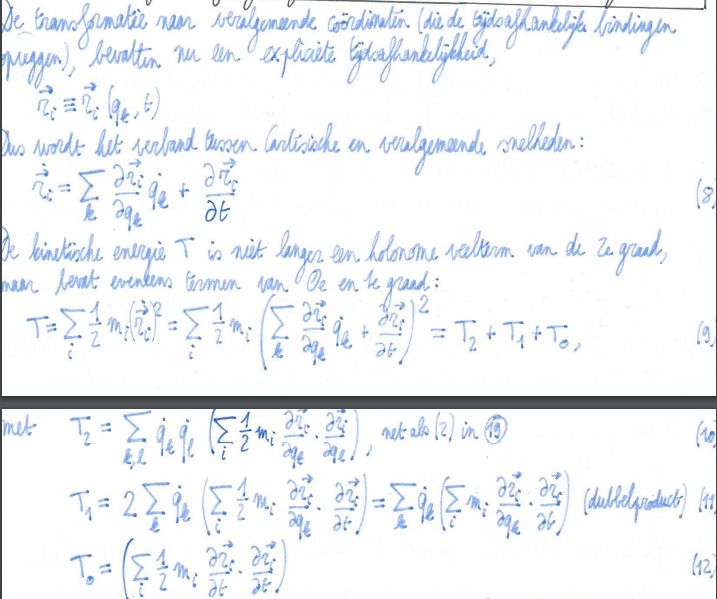 De transformatie naar veralgemeende coördinaten (die de tijdsafhankelijke bindingen
opleggen), bevatten nu een expliciete tijdsafhankelijkheid,
r⃗ᵢ ≡ r⃗ᵢ (qₖ, t)
Dus wordt het verband tussen Cartesische en veralgemeende snelheden:
r⃗̇ᵢ = Σₖ ∂r⃗ᵢ/∂qₖ q̇ₖ + ∂r⃗ᵢ/∂t (8)
De kinetische energie T is niet langer een holonome veelterm van de 2e graad,
maar bevat eveneens termen van 0e en 1e graad:
T = Σᵢ 1/2 mᵢ(r⃗̇ᵢ)² = Σᵢ 1/2 mᵢ (Σₖ ∂r⃗ᵢ/∂qₖ q̇ₖ + ∂r⃗ᵢ/∂t)² = T₂ + T₁ + T₀, (9)
met T₂ = Σₖ,ₗ q̇ₖ q̇ₗ (Σᵢ 1/2 mᵢ ∂r⃗ᵢ/∂qₖ · ∂r⃗ᵢ/∂qₗ), net als (2) in 19 (10)
T₁ = 2 Σₖ q̇ₖ (Σᵢ 1/2 mᵢ ∂r⃗ᵢ/∂qₖ · ∂r⃗ᵢ/∂t) = Σₖ q̇ₖ (Σᵢ mᵢ ∂r⃗ᵢ/∂qₖ · ∂r⃗ᵢ/∂t) (dubbelproduct) (11)
T₀ = (Σᵢ 1/2 mᵢ ∂r⃗ᵢ/∂t · ∂r⃗ᵢ/∂t) (12)